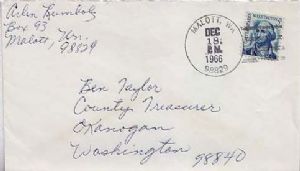 Arlin Bumbolz
Box 93
Malott, Wn.
98829
MALOTT, WA
DEC
19
P.M.
1966
98829
Ben Taylor
County Treasurer
Okanogan
Washington
98840